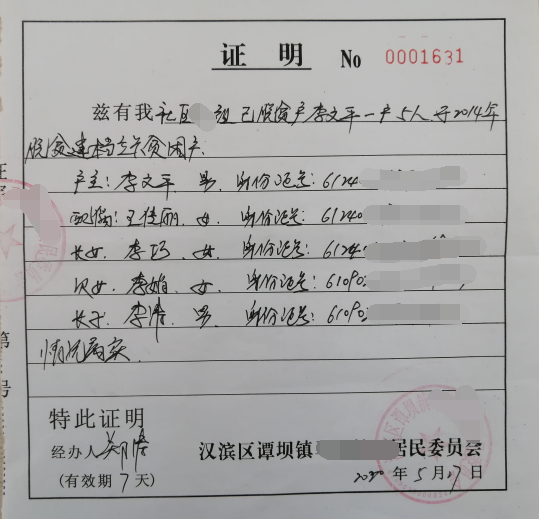 证明 No 0001631
兹有我社区 组已脱贫户李文平一户5人于2014年
脱贫建档立卡贫困户.
户主:李文平 男 身份证号:61240
配偶:王佳丽,女,身份证号:61240
长女,李巧,女,身份证号:61240
次女,李娟,女,身份证号:61090
长子,李浩,男,身份证号:61090
情况属实
特此证明
经办人
(有效期7天)
汉滨区谭坝镇 居民委员会
2020年5月17日
第
号